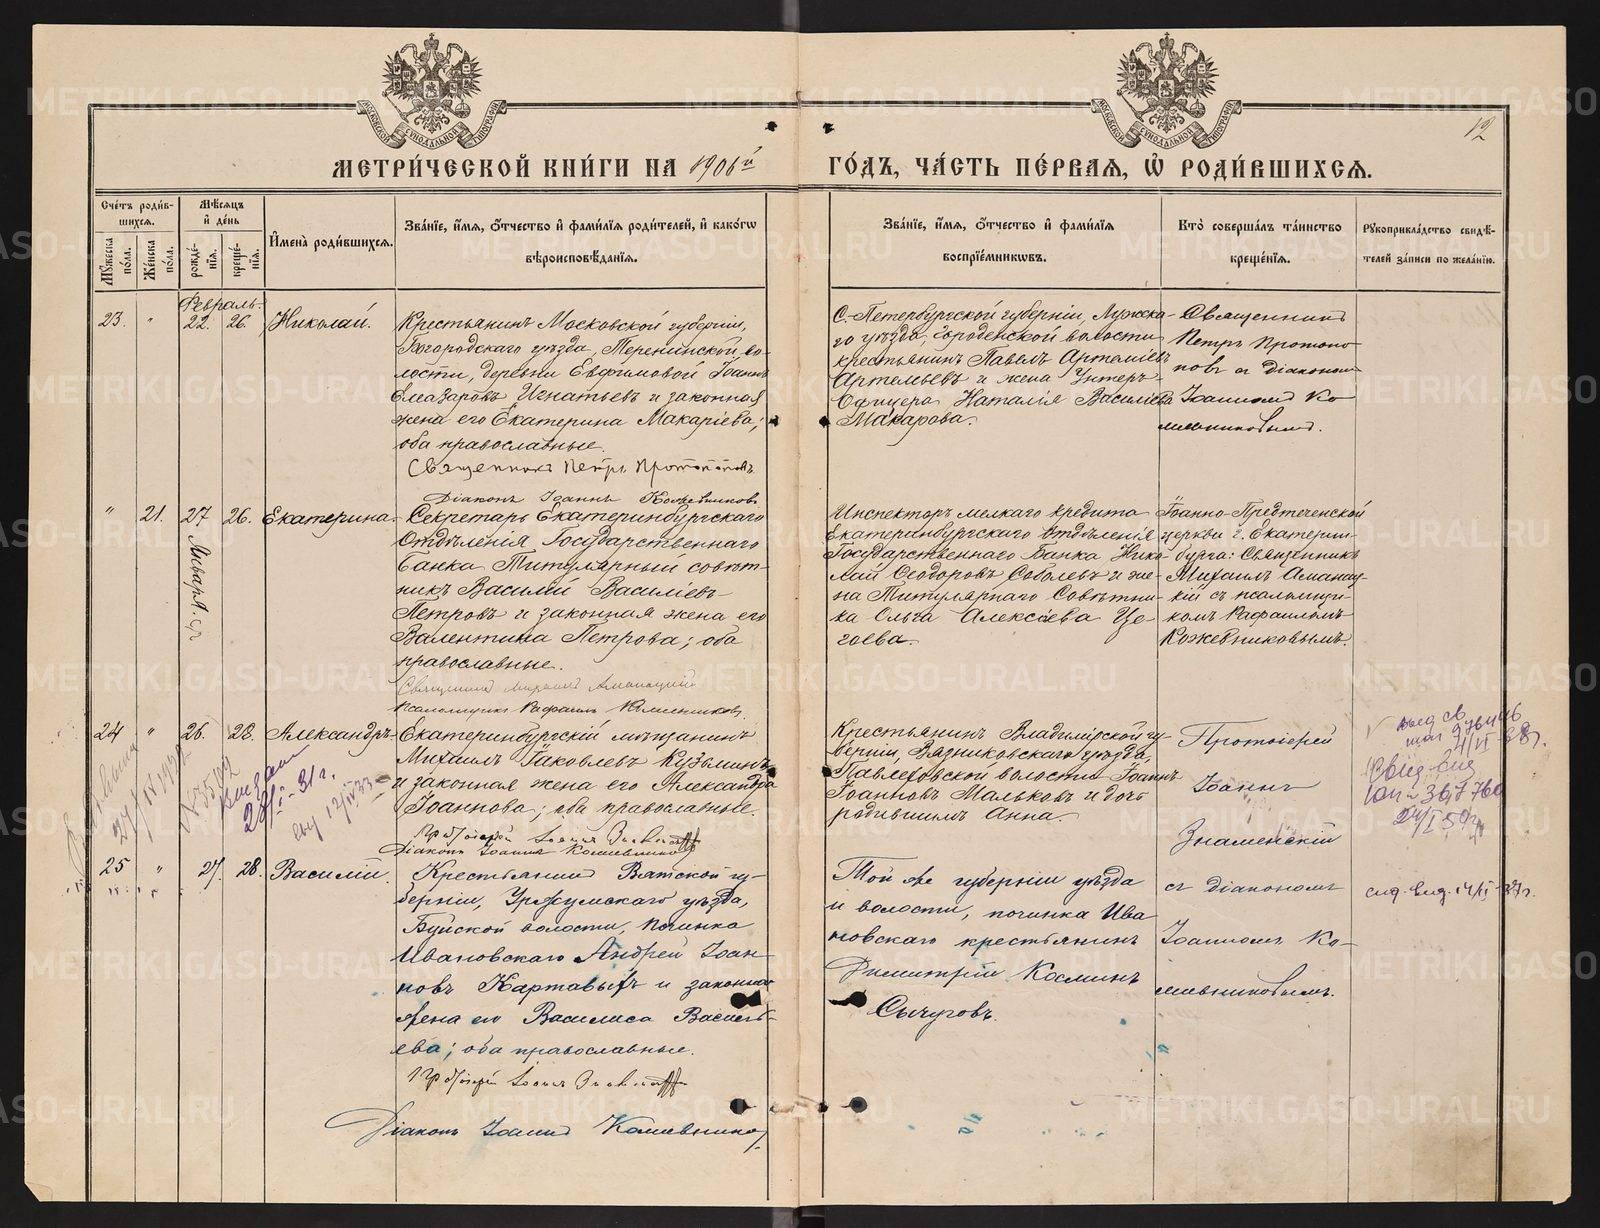 12
МЕТРИ́ЧЕСКОЙ КНИ́ГИ НА 1906й ГО́ДЪ, ЧА́СТЬ ПЕ́РВАѦ, Ѡ҆ РОДИ́ВШИХСѦ.
Сче́тъ роди́в-
шихсѧ.
Мѣ́сѧцъ
и҆ де́нь
Мꙋ́жеска
по́ла.
Же́нска
по́ла.
рожде́-
нїѧ.
креще́-
нїѧ.
И҆мена̀ роди́вшихсѧ.
Зва́нїе, и҆́мѧ, ѻ҆́тчество и҆ фами́лїѧ роди́телей, и҆ како́гѡ
вѣроисповѣ́данїѧ.
Зва́нїе, и҆́мѧ, ѻ҆́тчество и҆ фами́лїѧ
воспрїе́мникѡвъ.
Кто̀ соверша́лъ та́инство
креще́нїѧ.
Рꙋкоприкла́дство свидѣ́-
телей за́писи по жела́нїю.
Февраль.
23. " 22. 26. Николай.
Крестьянинъ Московской губерніи,
Богородскаго уѣзда, Теренинской во-
лости, деревни Евфимовой Іоаннъ
Елеазаровъ Игнатьевъ и законная
жена его Екатерина Макаріева;
оба православные.
Священникъ Петръ Протопоповъ.
Діаконъ Іоаннъ Кошевниковъ
С.-Петербургской губерніи, Лужска-
го уѣзда, Городенской волости
крестьянинъ Павелъ Артеміевъ
Артемьевъ и жена Унтеръ-
Офицера Наталія Василіева
Макарова.
Священникъ
Петръ Протопо
повъ съ діакономъ
Іоанномъ Ко
шевниковымъ.
" 21. 27 Января. 26. Екатерина
Секретарь Екатеринбургскаго
Отдѣленія Государственнаго
Банка Титулярный совѣт-
никъ Василій Василіевъ
Петровъ и законная жена его
Валентина Петрова; оба
православные.
Священникъ Михаилъ
Псаломщикъ Рафаилъ
Инспекторъ мелкаго кредита
Екатеринбургскаго Отдѣленія
Государственнаго Банка Нико-
лай Ѳеодоровъ Соболевъ и же-
на Титулярнаго Совѣтни-
ка Ольга Алексіева Ще
гоева.
Іоанно-Предтеченской
церкви г. Екатерин-
бурга: Священникъ
Михаилъ Аманац-
кій съ псаломщи-
комъ Рафаиломъ
Кожевниковымъ.
24 " 26. 28. Александръ
Екатеринбургскій мѣщанинъ
Михаилъ Іаковлевъ Кузьминъ
и законная жена его Александра
Іоаннова; оба православные.
Протоіерей Іоаннъ
Діаконъ Іоаннъ Кошевниковъ
Крестьянинъ Владимірской гу-
берніи, Вязниковскаго уѣзда,
Павловской волости Іоаннъ
Іоанновъ Мальковъ и дочь
родившимъ Анна.
Протоіерей
Іоаннъ
Знаменскій
28/I-31г.
12/IV 33
367760
25 " 27. 28. Василій.
Крестьянинъ Вятской гу-
берніи, Уржумскаго уѣзда,
Буйской волости, починка
Ивановскаго Андрей Іоан
новъ Картавыхъ и законная
жена его Василиса Василь-
ева; оба православные.
Протоіерей Іоаннъ
Діаконъ Іоаннъ Кошевниковъ
Той же губерніи уѣзда
и волости, починка Ива
новскаго крестьянинъ
Димитрій Косминъ
Сычуговъ.
съ діакономъ
Іоанномъ Ко-
шевниковымъ.
METRIKI.GASO-URAL.RU